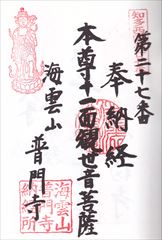 知多西
第二十七番
奉納経
本尊十一面観世音菩薩
海雲山
普門寺
海雲山
普門寺
納経所